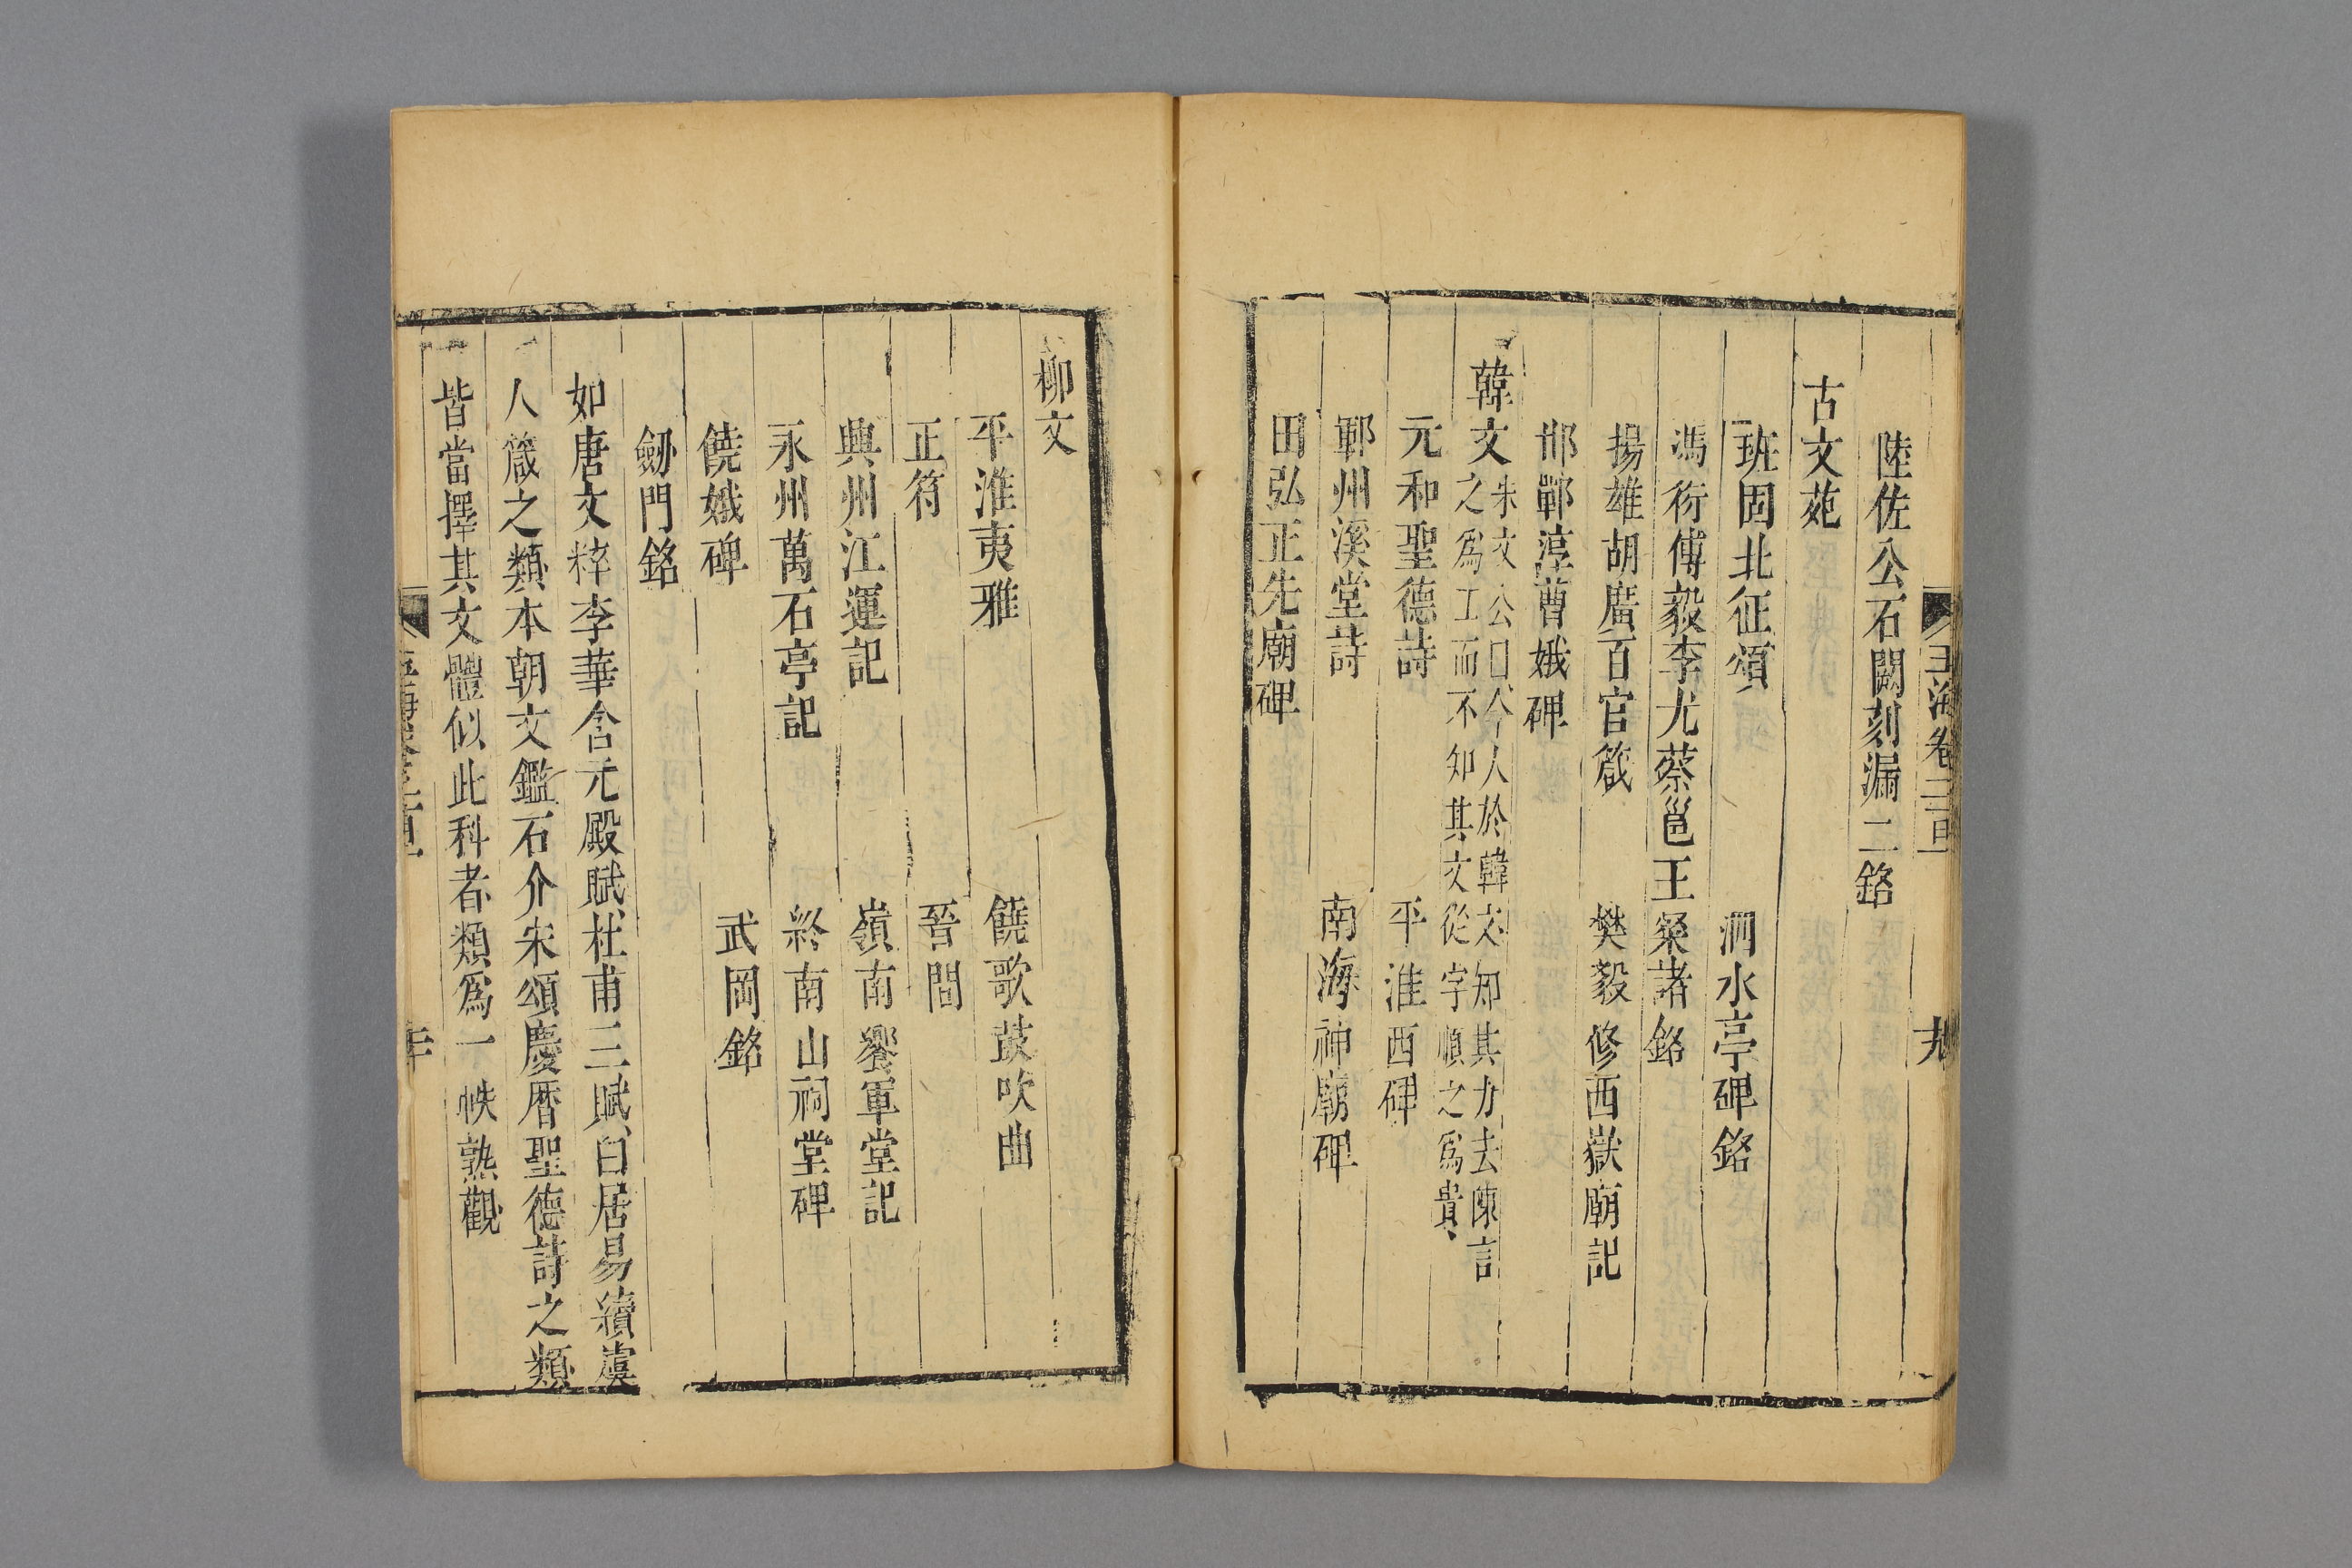 陸佐公石闕刻漏二銘
古文苑
班固北征頌　泗水亭碑銘
馮衍傅毅李尤蔡邕王粲諸銘
揚雄胡廣百官箴　樊毅修西嶽廟記
邯鄲淳曹娥碑
韓文朱文公曰今人於韓文知其力去陳言
之爲工而不知其文從字順之爲貴
元和聖德詩　平淮西碑
鄆州溪堂詩　南海神廟碑
田弘正先廟碑
柳文
平淮夷雅　饒歌鼓吹曲
正符　晉問
興州江運記　嶺南饗軍堂記
永州萬石亭記　終南山祠堂碑
饒娥碑　武岡銘
劒門銘
如唐文粹李華含元殿賦杜甫三賦白居易續虞
人箴之類本朝文鑑石介宋頌慶曆聖德詩之類
皆當擇其文體似此科者類爲一帙熟觀